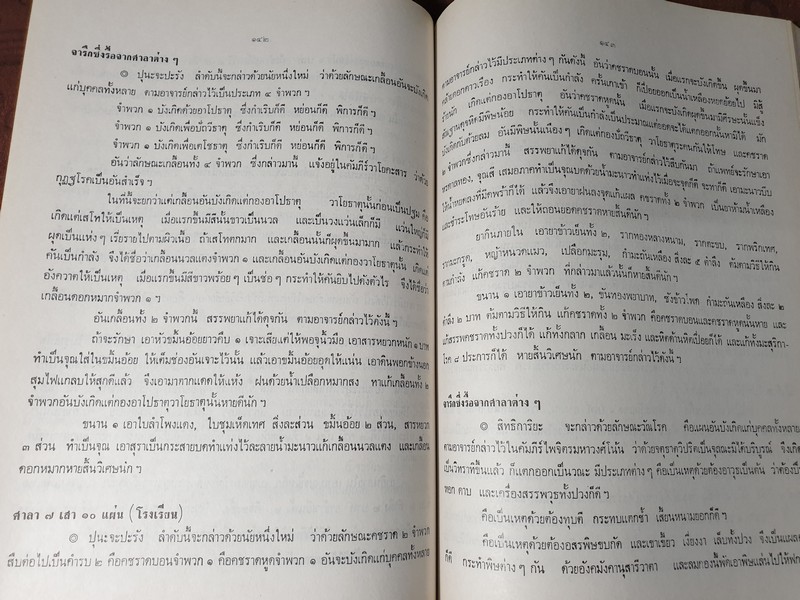 ๑๔๒
จารึกซึ่งรื้อจากศาลาต่าง ๆ
๏ ปุนะจะปะรัง ลำดับนี้จะกล่าวด้วยนัยหนึ่งใหม่ ว่าด้วยลักษณะเกลื้อนอันจะบังเกิด
แก่บุคคลทั้งหลาย ตามอาจารย์กล่าวไว้เป็นประเภท ๔ จำพวก ฯ
จำพวก ๑ บังเกิดด้วยอาโปธาตุ ซึ่งกำเริบก็ดี หย่อนก็ดี พิการก็ดี ฯ
จำพวก ๑ บังเกิดเพื่อปถวีธาตุ ซึ่งกำเริบก็ดี หย่อนก็ดี พิการก็ดี ฯ
จำพวก ๑ บังเกิดเพื่อเตโชธาตุ ซึ่งกำเริบก็ดี หย่อนก็ดี พิการก็ดี ฯ
อันว่าลักษณะเกลื้อนทั้ง ๔ จำพวก ซึ่งกล่าวมานี้ แจ้งอยู่ในคัมภีร์วาโยคะสาร ว่าด้วย
กุฏฐโรคเป็นอันสำเร็จ ฯ
ในที่นี้จะยกว่าแต่เกลื้อนอันบังเกิดแต่กองอาโปธาตุ วาโยธาตุนั้นก่อนเป็นปฐม คือ
เกิดแต่เสโทให้เป็นเหตุ เมื่อแรกขึ้นมีสีนั้นขาวเป็นนวล และเป็นวงแว่นเล็กก็มี แว่นใหญ่ก็มี
ผุดเป็นแห่งๆ เรี่ยรายไปตามผิวเนื้อ ถ้าเสโทตกมาก และเกลื้อนนั้นก็ผุดขึ้นมามาก แล้วกระทำให้
คันเป็นกำลัง จึงได้ชื่อว่าเกลื้อนนวลแตงจำพวก ๑ และเกลื้อนอันบังเกิดแต่กองวาโยธาตุนั้น เกิดแต่
อังควาตให้เป็นเหตุ เมื่อแรกขึ้นมีสีขาวพร้อยๆ เป็นช่อๆ กระทำให้คันยิบไปดังตัวไร จึงได้ชื่อว่า
เกลื้อนดอกหมากจำพวก ๑ ฯ
อันเกลื้อนทั้ง ๒ จำพวกนี้ สรรพยาแก้ได้ดุจกัน ตามอาจารย์กล่าวไว้ดังนี้ ฯ
ถ้าจะรักษา เอาหัวขมิ้นอ้อยยาวคืบ ๑ เจาะเสียแต่ให้พอจุนิ้วมือ เอาสารหยวกหนัก ๑ บาท
ทำเป็นจุณใส่ในขมิ้นอ้อย ให้เต็มช่องอันเจาะไว้นั้น แล้วเอาขมิ้นอ้อยอุดให้แน่น เอาดินพอกข้างนอก
สุมไฟแกลบให้สุกดีแล้ว จึงเอามาตากแดดให้แห้ง ฝนด้วยน้ำเปลือกหมากสง ทาแก้เกลื้อนทั้ง ๒
จำพวกอันบังเกิดแต่กองอาโปธาตุวาโยธาตุนั้นหายดีนัก ฯ
ขนาน ๑ เอาใบลำโพงแดง, ใบชุมเห็ดเทศ สิ่งละส่วน ขมิ้นอ้อย ๒ ส่วน, สารหยวก
๓ ส่วน ทำเป็นจุณ เอาสุราเป็นกระสายบดทำแท่งไว้ละลายน้ำมะนาวแก้เกลื้อนนวลแตง และเกลื้อน
ดอกหมากหายสิ้นวิเศษนัก ฯ
ศาลา ๗ เสา ๑๐ แผ่น (โรงเรียน)
๏ ปุนะจะปะรัง ลำดับนี้จะกล่าวด้วยนัยหนึ่งใหม่ ว่าด้วยลักษณะคชราด ๒ จำพวก
สืบต่อไปเป็นคำรบ ๒ คือคชราดบอนจำพวก ๑ คือคชราดหูดจำพวก ๑ อันจะบังเกิดแก่บุคคลทั้งหลาย
๑๔๓
ตามอาจารย์กล่าวไว้มีประเภทต่างๆ กันดังนี้ อันว่าคชราดบอนนั้น เมื่อแรกจะบังเกิดขึ้น ผุดขึ้นมา
คล้ายดอกดาวเรือง กระทำให้คันเป็นกำลัง ครั้นเกาเข้า ก็เปื่อยออกเป็นน้ำเหลืองหยดย้อยไป มิสู้
เจ็บนัก เกิดแต่กองอาโปธาตุ อันว่าคชราดหูดนั้น เมื่อแรกจะบังเกิดผุดขึ้นมามีศีรษะนั้นแข็ง
สัณฐานดุจหิดมีพิษน้อย กระทำให้คันเป็นกำลังเป็นประมาณแต่ยอดจะได้แตกออกนั้นหามิได้ มัก
บังเกิดกับด้วยลม อันมีพิษนั้นเนืองๆ เกิดแต่กองปถวีธาตุ วาโยธาตุระคนกันให้โทษ และคชราด
๒ จำพวกซึ่งกล่าวมานี้ สรรพยาแก้ได้ดุจกัน ตามอาจารย์กล่าวไว้สืบกันมา ถ้าแพทย์จะรักษาเอา
ปรอท, จุณสี เสมอภาคทำเป็นจุณบดด้วยน้ำมะนาวทำแท่งไว้
แล้วจึงเอายาฝนลงจุดแก้แผล คชราดทั้ง ๒ จำพวก เป็นยาห้ามน้ำเหลือง
และชำระโทษอันร้าย และให้ถอนยอดคชราดหายสิ้นดีนัก ฯ
ยากินภายใน เอายาข้าวเย็นทั้ง ๒, รากทองหลางหนาม, รากตะขบ, รากพริกเทศ,
หญ้าหนวดแมว, เปลือกมะรุม, กำมะถันเหลือง สิ่งละ ๕ ตำลึง ต้มตามวิธีให้กิน
ตามกำลัง แก้คชราด ๒ จำพวก ที่กล่าวมาแล้วนั้นก็หายสิ้นดีนัก ฯ
ขนาน ๑ เอายาข้าวเย็นทั้ง ๒, ขันทองพยาบาท, ซังข้าวโพด กำมะถันเหลือง สิ่งละ ๒
ตำลึง ๒ บาท ต้มตามวิธีให้กิน แก้คชราดทั้ง ๒ จำพวก คือคชราดบอนและคชราดหูดนั้นหาย และ
แก้สรรพคชราดทั้งปวงก็ได้ แก้ทั้งกลาก เกลื้อน มะเร็ง และหิดด้านหิดเปื่อยก็ได้ และแก้ทั้งมะสุริกา
โรค ๘ ประการก็ได้ หายสิ้นวิเศษนัก ตามอาจารย์กล่าวไว้ดังนี้ ฯ
จารึกซึ่งรื้อจากศาลาต่าง ๆ
๏ สิทธิการิยะ จะกล่าวด้วยลักษณะวณโรค คือแผลอันบังเกิดแก่บุคคลทั้งหลาย
ตามอาจารย์กล่าวไว้ในคัมภีร์ไพจิตรมหาวงศ์โน้น ว่าด้วยจตุธาตุวิปริตเป็นจุลณะมิได้บริบูรณ์ จึงเกิด
เป็นวิทราทิขึ้นแล้ว ก็แตกออกเป็นวณะ มีประเภทต่างๆ คือเป็นเหตุด้วยต้องอาวุธเป็นต้น ว่าต้องปืน
หอก ดาบ และเครื่องสรรพวุธทั้งปวงก็ดี ฯ
คือเป็นเหตุด้วยต้องทุบตี กระทบแตกช้ำ เสี้ยนหนามยอกก็ดี ฯ
คือเป็นเหตุด้วยต้องอสรพิษขบกัด และเขาเขี้ยว เงี่ยงงา เล็บทั้งปวง จึงเป็นแผล
ก็ดี กระทำพิษต่างๆ กัน ด้วยอังคมังคานุสารีวาตา และสมถองนี้พัดเอาพิษแล่นไปให้